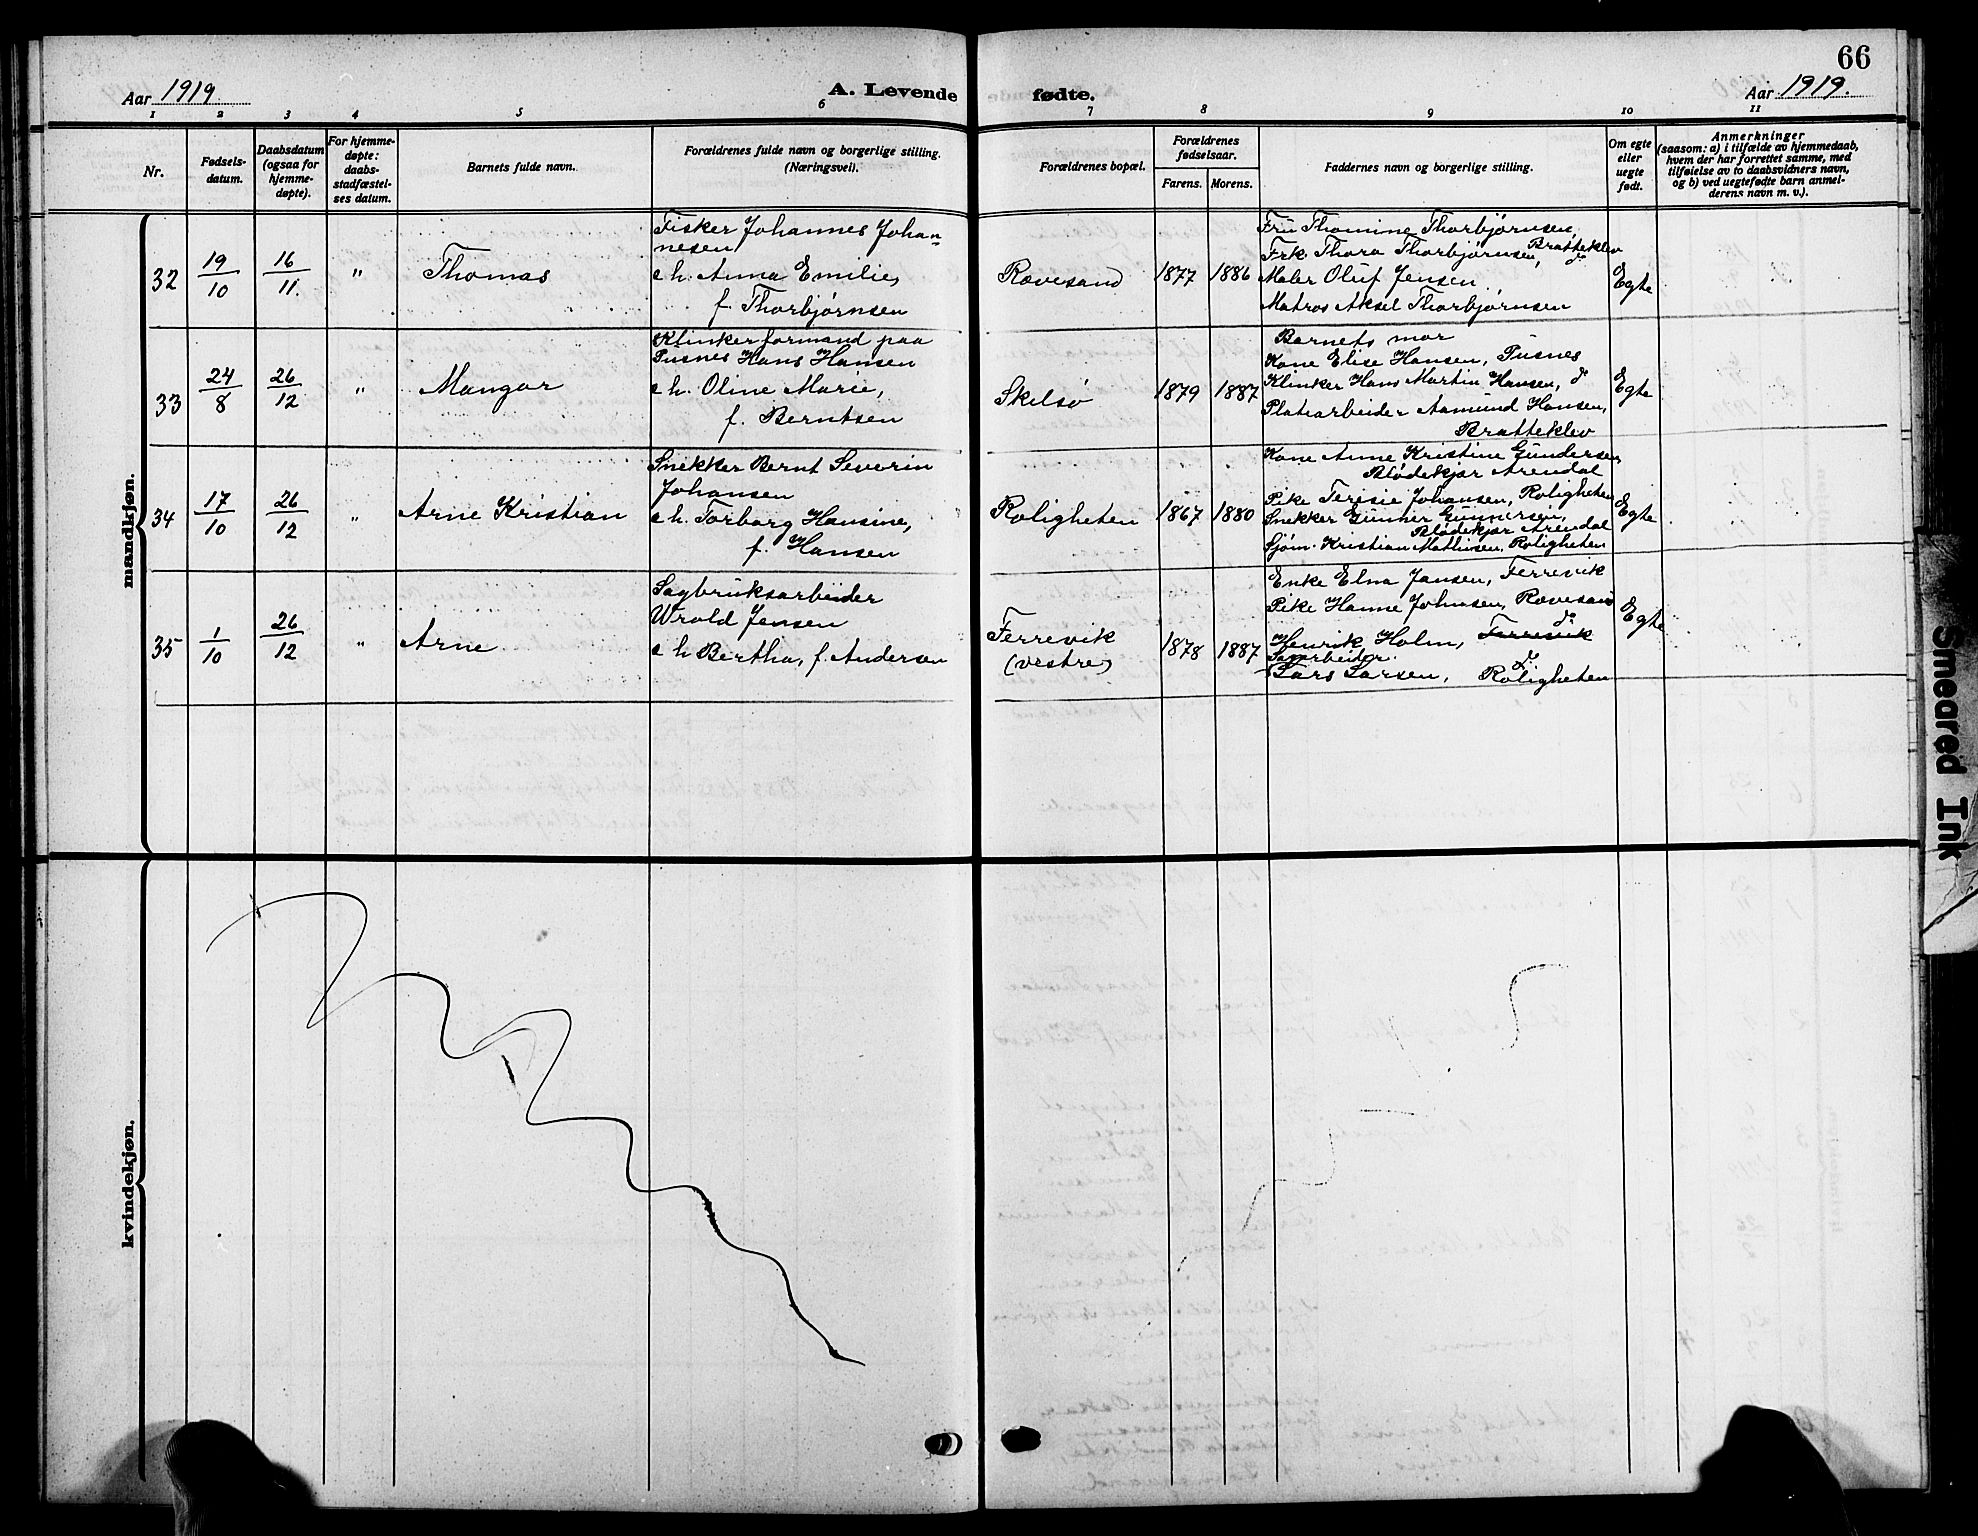 66
Aar 1919
A. Levende fødte.
Aar 1919.
1 2 3 4 5 6 7 8 9 10 11
Nr.
Fødsels-
datum.
Daabsdatum
(ogsaa for
hjemme-
døpte).
For hjemme-
døpte:
daabs-
stadfæstel-
ses datum.
Barnets fulde navn.
Forældrenes fulde navn og borgerlige stilling.
(Næringsvei).
Forældrenes bopæl.
Forældrenes
fødselsaar.
Farens. Morens.
Faddernes navn og borgerlige stilling.
Om egte
eller
uegte
født.
Anmerkninger
(saasom: a) i tilfælde av hjemmedaab,
hvem der har forrettet samme, med
tilføielse av to daabsvidners navn,
og b) ved uegtefødte barn anmel-
derens navn m. v.).
mandkjøn.
32
19/10
16/11.
"
Thomas
Fisker Johannes Johan-
nesen
e h. Anna Emilie,
f. Thorbjørnsen
Rævesand
1877
1886
Fru Thomine Thorbjørnsen,
Bratteklev
Frk. Thora Thorbjørnsen, do
Maler Oluf Jensen
Matros Aksel Thorbjørnsen
Egte
33
24/8
26/12
"
Mangor
Klinkerformand paa
Pusnes Hans Hansen
e h. Oline Marie,
f. Berntsen
Skilsø
1879
1887
Barnets mor
Kone Elise Hansen, Pusnes
Klinker Hans Martin Hansen, do
Platearbeider Aamund Hansen,
Bratteklev
Egte
34
17/10
26/12
"
Arne Kristian
Snekker Bernt Severin
Johansen
e h. Torborg Hansine,
f. Hansen
Roligheten
1867
1880
Kone Anne Kristine Gundersen,
Blødekjær Arendal
Pike Terisie Johansen, Roligheten
Snekker Gunner Gunnersen,
Blødekjær Arendal
Sjøm. Kristian Mathisen, Roligheten
Egte
35
1/10
26/12
"
Arne
Sagbruksarbeider
Wrold Jensen
e h. Bertha, f. Andersen
Ferrevik
(vestre)
1878
1887
Enke Elna Jansen, Ferrevik
Pike Hanne Johnsen, Rævesand
do
Henrik Holm, Ferrevik
Sagarbeider
do
Lars Larsen, Roligheten
Egte
kvindekjøn.
Smeared Ink